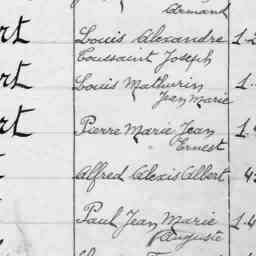 Armand
rt Louis Alexandre 1.
Toussaint Joseph
rt Louis Mathurin 1.
Jean Marie
rt Pierre Marie Jean 1.
Ernest
Alfred Alexis Albert 4
Paul Jean Marie 1.4
Auguste